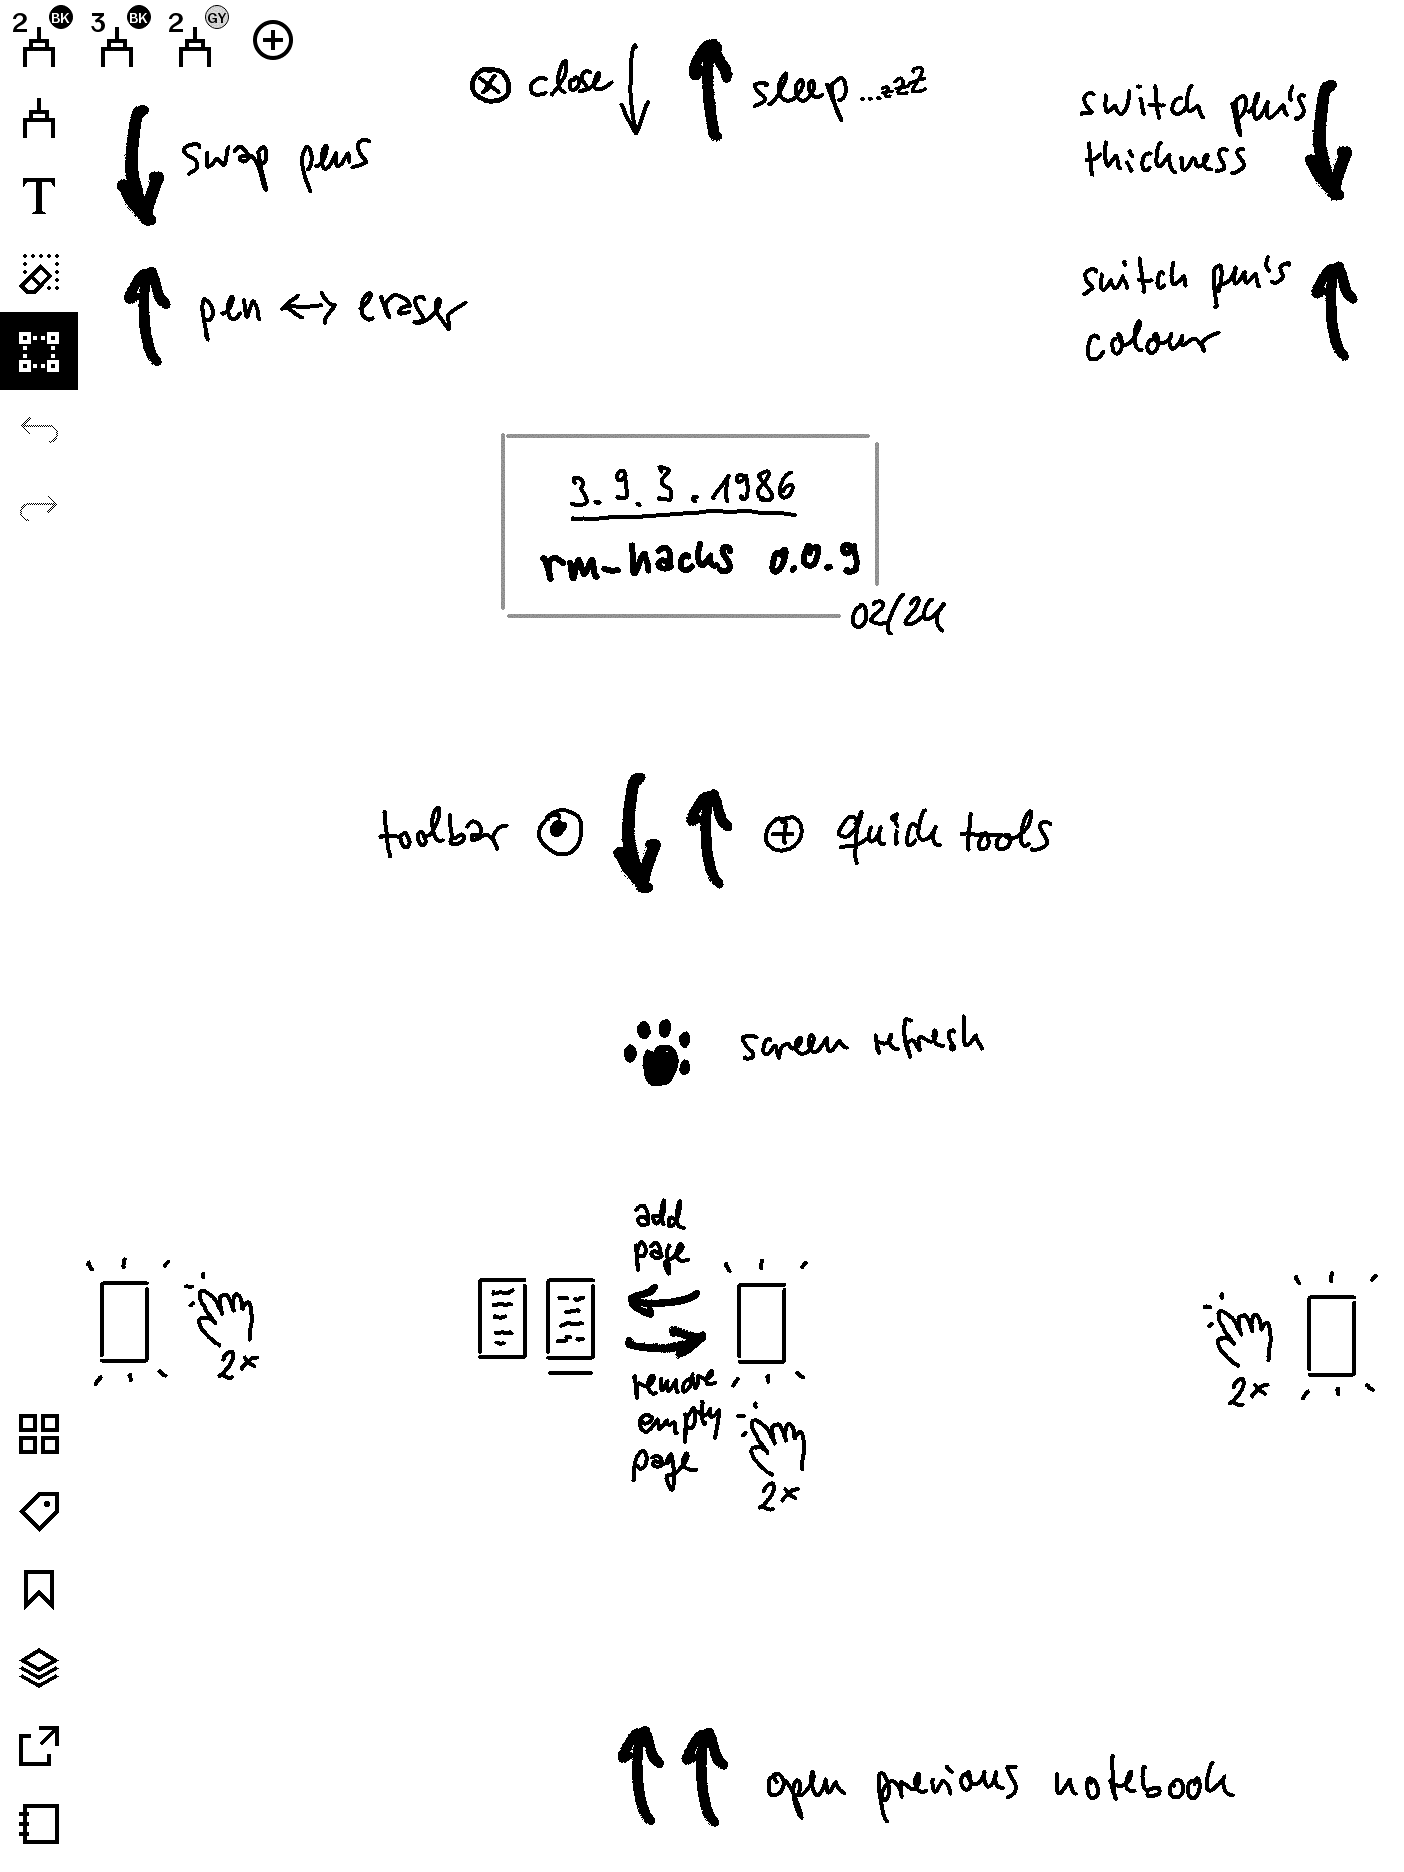 2 BK 3 BK 2 GY
close
sleep...zzZ
swap pens
switch pen's
thickness
T
pen ↔ eraser
switch pen's
colour
3.9.3.1986
rm-hacks 0.0.9
02/24
toolbar
quick tools
screen refresh
add
page
2x
remove
empty
page
2x
2x
open previous notebook